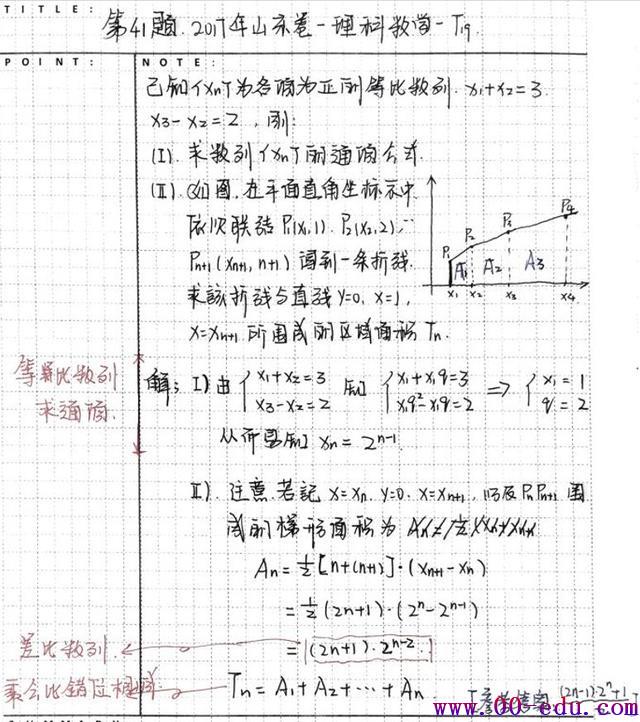 TITLE:
第41题. 2017年山东卷-理科数学-T19.
POINT:
NOTE:
已知{xn}为各项为正的等比数列. x1+x2=3.
x3-x2=2, 则:
(I). 求数列{xn}的通项公式.
(II). 如图. 在平面直角坐标系中.
依次联结P1(x1,1). P2(x2,2)…
Pn+1(xn+1, n+1) 得到一条折线.
求该折线与直线y=0, x=1,
x=xn+1 所围成的区域面积Tn.
P1 P2 P3 P4
A1 A2 A3
x1 x2 x3 x4
等比数列
求通项.
解: I) 由 { x1+x2=3 知 { x1+x1q=3 => { x1=1
x3-x2=2 x1q²-x1q=2 q=2
从而易知 xn=2^(n-1).
II). 注意. 若记 x=xn. y=0. x=xn+1. 以及PnPn+1 围
成的梯形面积为
An = 1/2[n+(n+1)]·(xn+1-xn)
= 1/2(2n+1)·(2^n-2^(n-1))
= (2n+1)·2^(n-2).
差比数列.
乘公比错位相减
Tn = A1+A2+…+An.
(2n-1)·2^n+1
www.00-edu.com